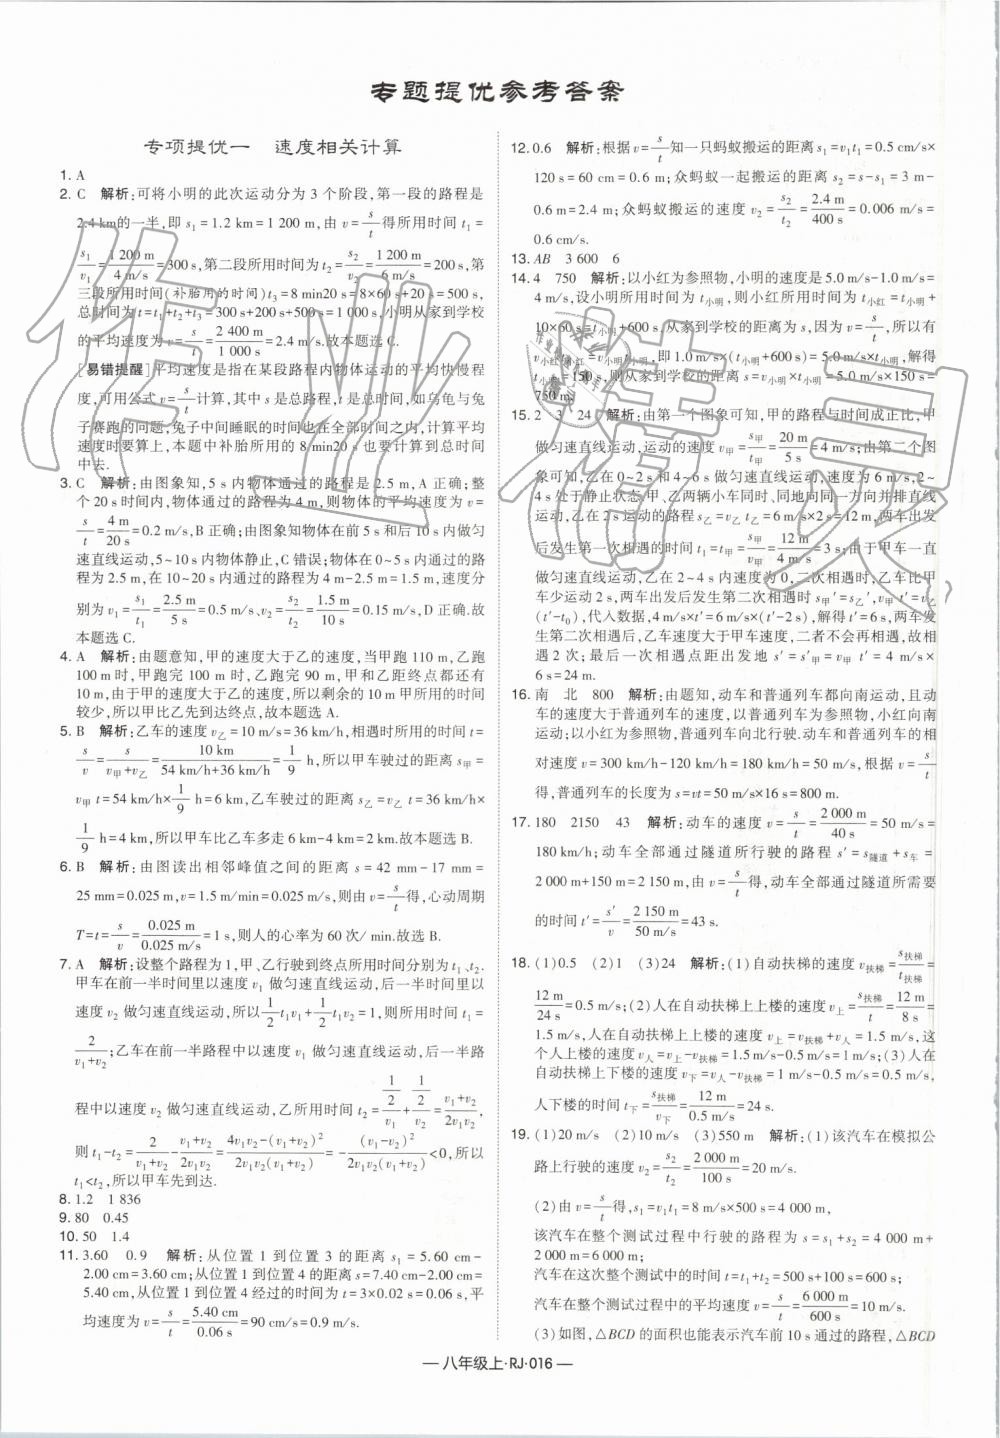 专题提优参考答案
专项提优一 速度相关计算
1. A
2. C 解析:可将小明的此次运动分为 3 个阶段,第一段的路程是
2.4 km的一半,即 s₁=1.2 km=1 200 m,由 v=s/t得所用时间 t₁=
s₁/v₁=1 200 m/4 m/s=300 s,第二段所用时间为t₂=s₂/v₂=1 200 m/6 m/s=200 s,第
三段所用时间(补胎用的时间)t₃=8 min20 s=8×60 s+20 s=500 s,
总时间为 t=t₁+t₂+t₃=300 s+200 s+500 s=1 000 s,小明从家到学校
的平均速度为 v=s/t=2 400 m/1 000 s=2.4 m/s.故本题选 C.
[易错提醒]平均速度是指在某段路程内物体运动的平均快慢程
度,可用公式 v=s/t计算,其中 s 是总路程,t 是总时间,如乌龟与兔
子赛跑的问题,兔子中间睡眠的时间也在全部时间之内,计算平均
速度时要算上,本题中补胎所用的 8 min20 s 也要计算到总时间
中去.
3. C 解析:由图象知,5 s 内物体通过的路程是 2.5 m,A 正确;整
个 20 s 时间内,物体通过的路程为 4 m,则物体的平均速度为 v=
s/t=4 m/20 s=0.2 m/s,B 正确;由图象知物体在前 5 s 和后 10 s 内做匀
速直线运动,5~10 s 内物体静止,C 错误;物体在 0~5 s 内通过的
路程为 2.5 m,在 10~20 s 内通过的路程为 4 m-2.5 m=1.5 m,速度分
别为 v₁=s₁/t₁=2.5 m/5 s=0.5 m/s、v₂=s₂/t₂=1.5 m/10 s=0.15 m/s,D 正确.故
本题选 C.
4. A 解析:由题意知,甲的速度大于乙的速度,当甲跑 110 m,乙跑
100 m 时,甲跑完 100 m 时,乙跑完 90 m,甲和乙距终点都还有
10 m,由于甲的速度大于乙的速度,所以剩余的 10 m 甲所用的时间
较少,所以甲比乙先到达终点,故本题选 A.
5. B 解析:乙车的速度 v乙=10 m/s=36 km/h,相遇时所用的时间 t=
s/v=s/(v甲+v乙)=10 km/(54 km/h+36 km/h)=1/9 h,所以甲车驶过的距离 s甲=
v甲 t=54 km/h×1/9 h=6 km,乙车驶过的距离 s乙=v乙 t=36 km/h×
1/9 h=4 km,所以甲车比乙车多走 6 km-4 km=2 km.故本题选 B.
6. B 解析:由图读出相邻峰值之间的距离 s=42 mm-17 mm=
25 mm=0.025 m,v=1.5 m/min=0.025 m/s,则由 v=s/t得,心动周期
T=t=s/v=0.025 m/0.025 m/s=1 s,则人的心率为 60 次/ min.故选 B.
7. A 解析:设整个路程为 1,甲、乙行驶到终点所用时间分别为 t₁、t₂.
甲车在前一半时间内以速度 v₁ 做匀速直线运动,后一半时间内以
速度 v₂ 做匀速直线运动,所以1/2t₁v₁+1/2t₁v₂=1,则所用时间 t₁=
2/(v₁+v₂);乙车在前一半路程中以速度 v₁ 做匀速直线运动,后一半路
程中以速度 v₂ 做匀速直线运动,乙所用时间为 t₂=(1/2)/v₁+(1/2)/v₂=(v₁+v₂)/2v₁v₂,
则 t₁-t₂=2/(v₁+v₂)-(v₁+v₂)/2v₁v₂=(4v₁v₂-(v₁+v₂)²)/(2v₁v₂(v₁+v₂))=-(v₁-v₂)²/(2v₁v₂(v₁+v₂))<0,所以
t₁<t₂,所以甲车先到达.
8. 1.2 1 836
9. 80 0.45
10. 50 1.4
11. 3.60 0.9 解析:从位置 1 到位置 3 的距离 s₁=5.60 cm-
2.00 cm=3.60 cm;从位置 1 到位置 4 的距离 s=7.40 cm-2.00 cm=
5.40 cm,从位置 1 到位置 4 经过的时间为 t=3×0.02 s=0.06 s,平
均速度为 v=s/t=5.40 cm/0.06 s=90 cm/s=0.9 m/s.
12. 0.6 解析:根据 v=s/t知一只蚂蚁搬运的距离 s₁=v₁t₁=0.5 cm/s×
120 s=60 cm=0.6 m;众蚂蚁一起搬运的距离 s₂=s-s₁=3 m-
0.6 m=2.4 m;众蚂蚁搬运的速度 v₂=s₂/t₂=2.4 m/400 s=0.006 m/s=
0.6 cm/s.
13. AB 3 600 6
14. 4 750 解析:以小红为参照物,小明的速度是 5.0 m/s-1.0 m/s=
4 m/s,设小明所用时间为 t小明,则小红所用时间为 t小红=t小明+
10×60 s=t小明+600 s,从家到学校的距离为 s,因为 v=s/t,所以
v小红 t小红=v小明 t小明,即 1.0 m/s×(t小明+600 s)=5.0 m/s×t小明,解得
t小明=150 s,则从家到学校的距离为 s=v小明×t小明=5.0 m/s×150 s=
750 m.
15. 2 3 24 解析:由第一个图象可知,甲的路程与时间成正比,甲
做匀速直线运动,运动的速度为 v甲=s甲/t甲=20 m/5 s=4 m/s;由第二个图
象可知,乙在 0~2 s 和 4~5 s 做匀速直线运动,速度为 6 m/s,在 2~
4 s 处于静止状态.甲、乙两辆小车同时、同地向同一方向做直线运
动,乙在 2 s 运动的路程 s乙=v乙 t乙=6 m/s×2 s=12 m,两车出发
后发生第一次相遇的时间 t₁=t甲=s甲/v甲=12 m/4 m/s=3 s;由于甲车一直
做匀速直线运动,乙在 2~4 s 内速度为 0,二次相遇时,乙车比甲
车少运动 2 s,两车出发后发生第二次相遇时 s甲′=s乙′,v甲 t′=v乙
(t′-t₀),代入数据,4 m/s×t′=6 m/s×(t′-2 s),解得 t′=6 s,两车发
生第二次相遇后,乙车速度大于甲车速度,二者不会再相遇,故相
遇 2 次;最后一次相遇点距出发地 s=s甲=v甲 t′=4 m/s×
6 s=24 m.
16. 南 北 800 解析:由题知,动车和普通列车都向南运动,且动
车的速度大于普通列车的速度,以普通列车为参照物,小红向南
运动;以小红为参照物,普通列车向北行驶.动车和普通列车的相
对速度 v=300 km/h-120 km/h=180 km/h=50 m/s,根据 v=s/t
得,普通列车的长度为 s=vt=50 m/s×16 s=800 m.
17. 180 2150 43 解析:动车的速度 v=s/t=2 000 m/40 s=50 m/s=
180 km/h;动车全部通过隧道所行驶的路程 s′=s隧道+s车=
2 000 m+150 m=2 150 m,由 v=s/t得,动车全部通过隧道所需要
的时间 t′=s′/v=2 150 m/50 m/s=43 s.
18. (1)0.5 (2)1 (3)24 解析:(1)自动扶梯的速度 v扶梯=s扶梯/t扶梯=
12 m/24 s=0.5 m/s;(2)人在自动扶梯上上楼的速度 v上=s扶梯/t=12 m/8 s=
1.5 m/s,人在自动扶梯上上楼的速度 v上=v扶梯+v人=1.5 m/s,这
个人上楼的速度 v人=v上-v扶梯=1.5 m/s-0.5 m/s=1 m/s;(3)人在
自动扶梯上下楼的速度 v下=v人-v扶梯=1 m/s-0.5 m/s=0.5 m/s,
人下楼的时间 t下=s扶梯/v下=12 m/0.5 m/s=24 s.
19. (1)20 m/s (2)10 m/s (3)550 m 解析:(1)该汽车在模拟公
路上行驶的速度 v₂=s₂/t₂=2 000 m/100 s=20 m/s.
(2)由 v=s/t得,s₁=v₁t₁=8 m/s×500 s=4 000 m,
该汽车在整个测试过程中行驶的路程为 s=s₁+s₂=4 000 m+
2 000 m=6 000 m;
汽车在这次整个测试中的时间 t=t₁+t₂=500 s+100 s=600 s;
汽车在整个测试过程中的平均速度 v=s/t=6 000 m/600 s=10 m/s.
(3)如图,△BCD 的面积也能表示汽车前 10 s 通过的路程,△BCD
— 八年级上·RJ·016 —
作业精灵